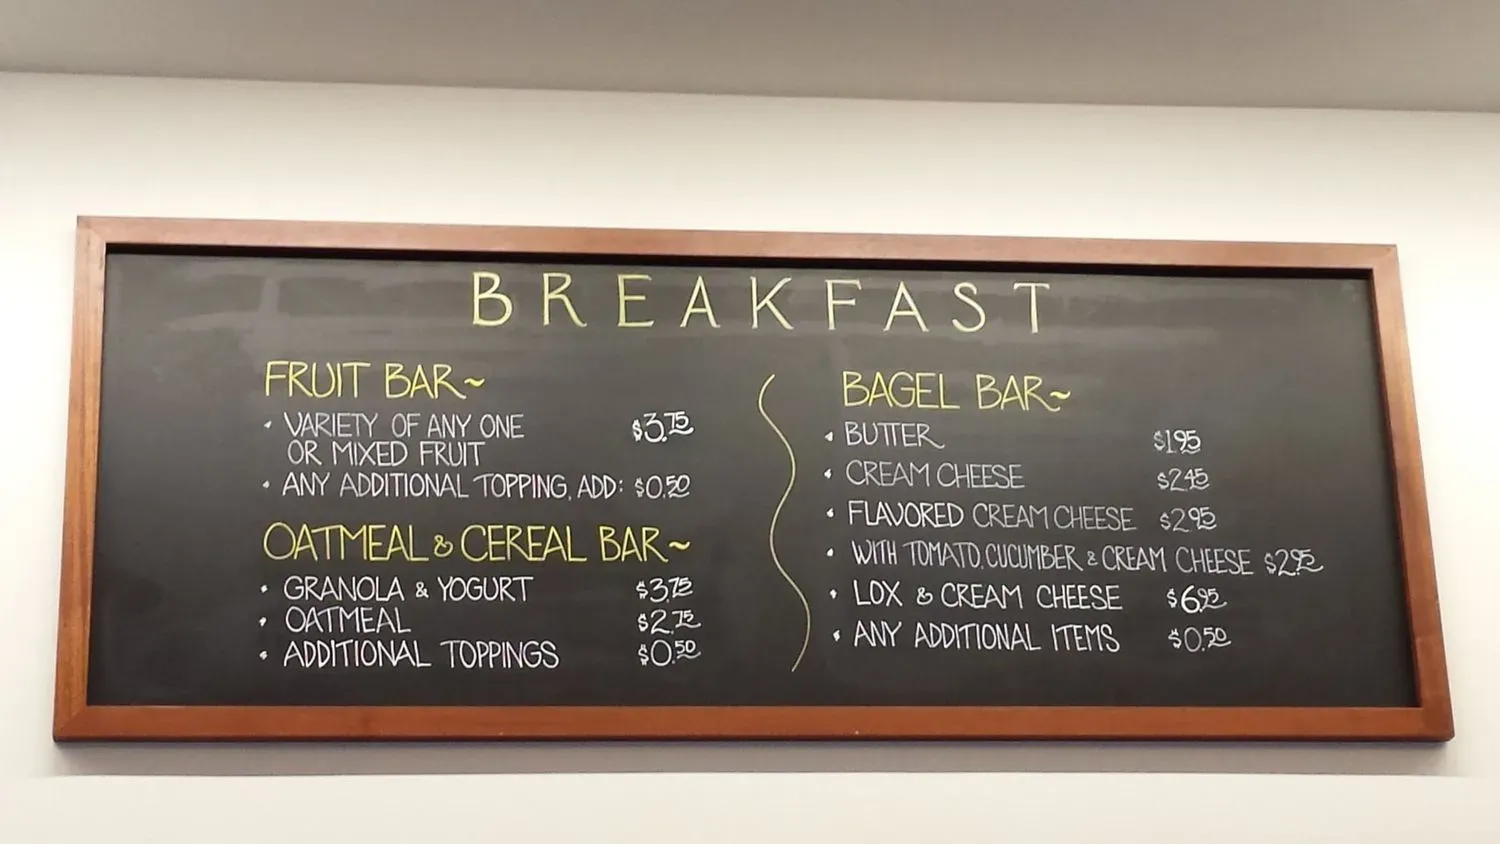 BREAKFAST
FRUIT BAR~
• VARIETY OF ANY ONE $3.75
OR MIXED FRUIT
• ANY ADDITIONAL TOPPING, ADD: $0.50
OATMEAL & CEREAL BAR~
• GRANOLA & YOGURT $3.75
• OATMEAL $2.75
• ADDITIONAL TOPPINGS $0.50
BAGEL BAR~
• BUTTER $1.95
• CREAM CHEESE $2.45
• FLAVORED CREAM CHEESE $2.95
• WITH TOMATO, CUCUMBER & CREAM CHEESE $2.95
• LOX & CREAM CHEESE $6.95
• ANY ADDITIONAL ITEMS $0.50